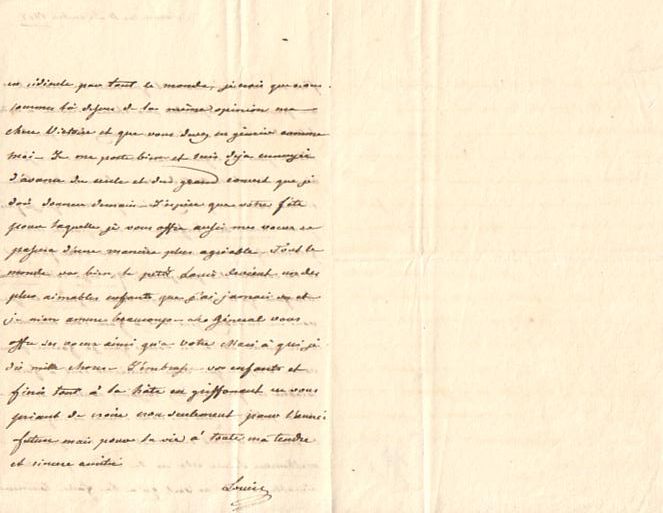 en ridicule par tout le monde, je crois que nous
sommes là dessus de la même opinion ma
chère Victoire et que vous devez en gémir comme
moi - Je me porte bien et suis deja ennuyée
d'avance du cercle et du grand couvert que je
dois donner demain - J'espère que votre fête
pour laquelle je vous offre aussi mes voeux se
passera d'une manière plus agréable - Tout le
monde va bien, le petit Louis devient un des
plus aimables enfants que j'ai jamais vu et
je m'en amuse beaucoup - Général vous
offre ses voeux ainsi qu'a votre Mari à qui je
dis mille choses - J'embrasse vos enfants et
finis tout à la hâte en griffonant en vous
priant de croire non seulement pour l'année
future mais pour la vie à toute ma tendre
et sincère amitié
Louise